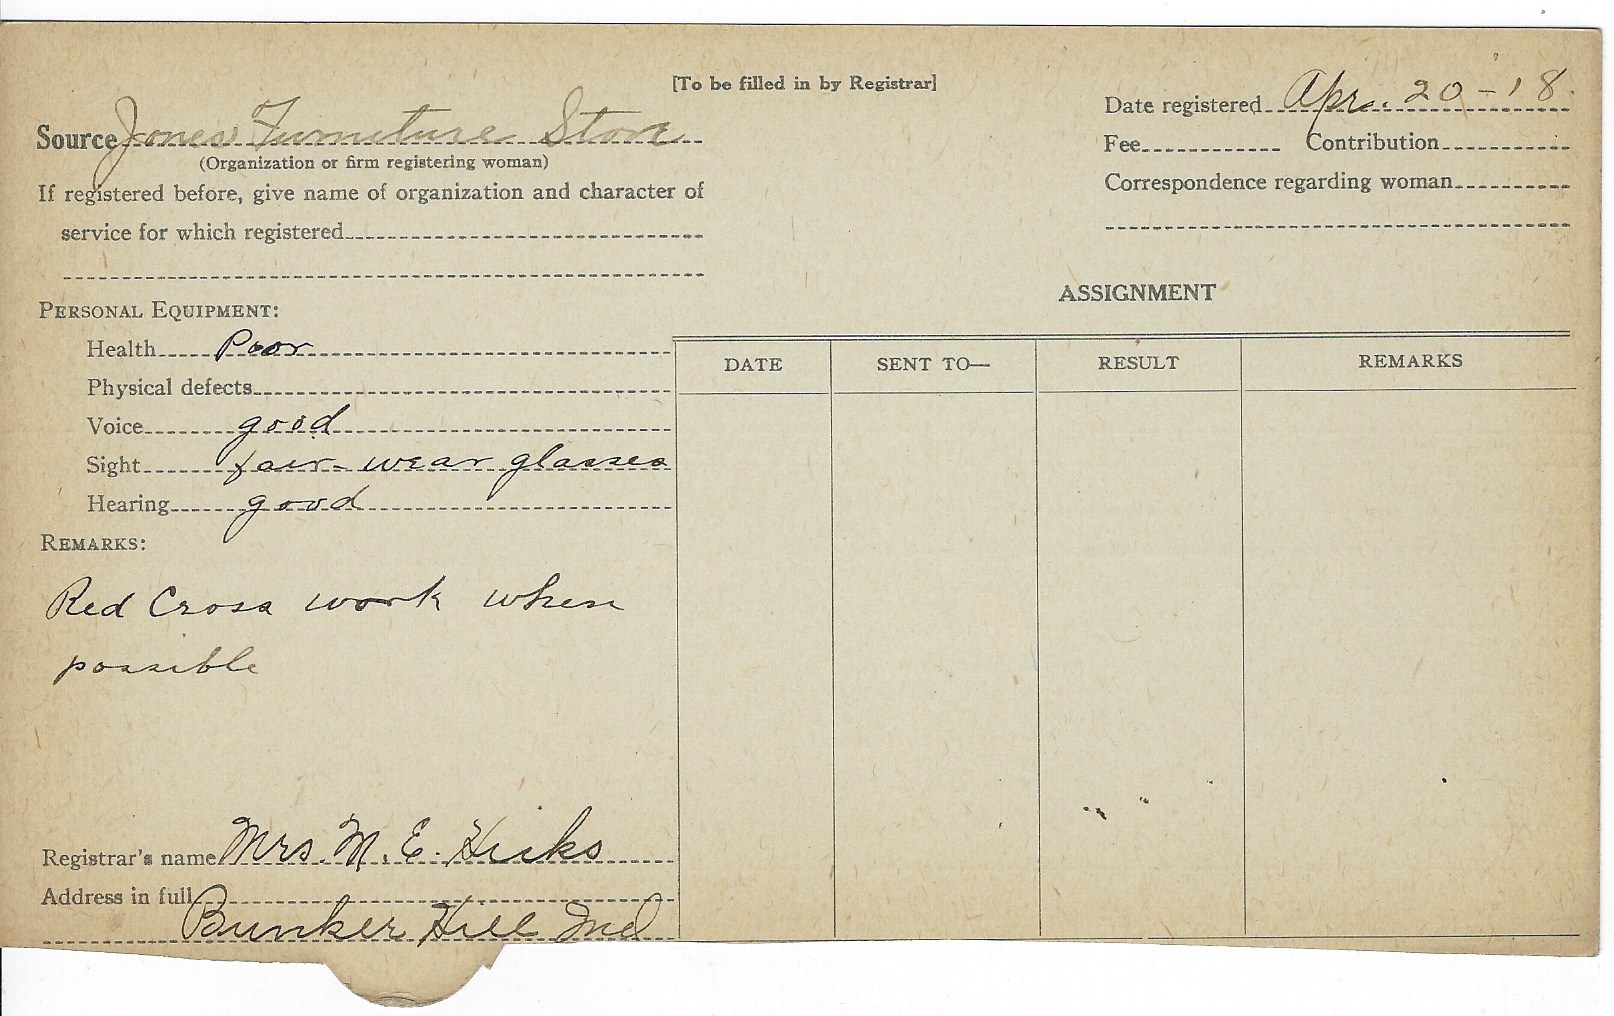 [To be filled in by Registrar]
Source Jones Furniture Store
(Organization or firm registering woman)
If registered before, give name of organization and character of
service for which registered
Date registered Apr. 20-'18.
Fee Contribution
Correspondence regarding woman
PERSONAL EQUIPMENT:
Health Poor
Physical defects
Voice good
Sight fair - wear glasses
Hearing good
REMARKS:
Red Cross work when
possible
Registrar's name Mrs. M. E. Hicks
Address in full
Bunker Hill Ind
ASSIGNMENT
DATE SENT TO— RESULT REMARKS